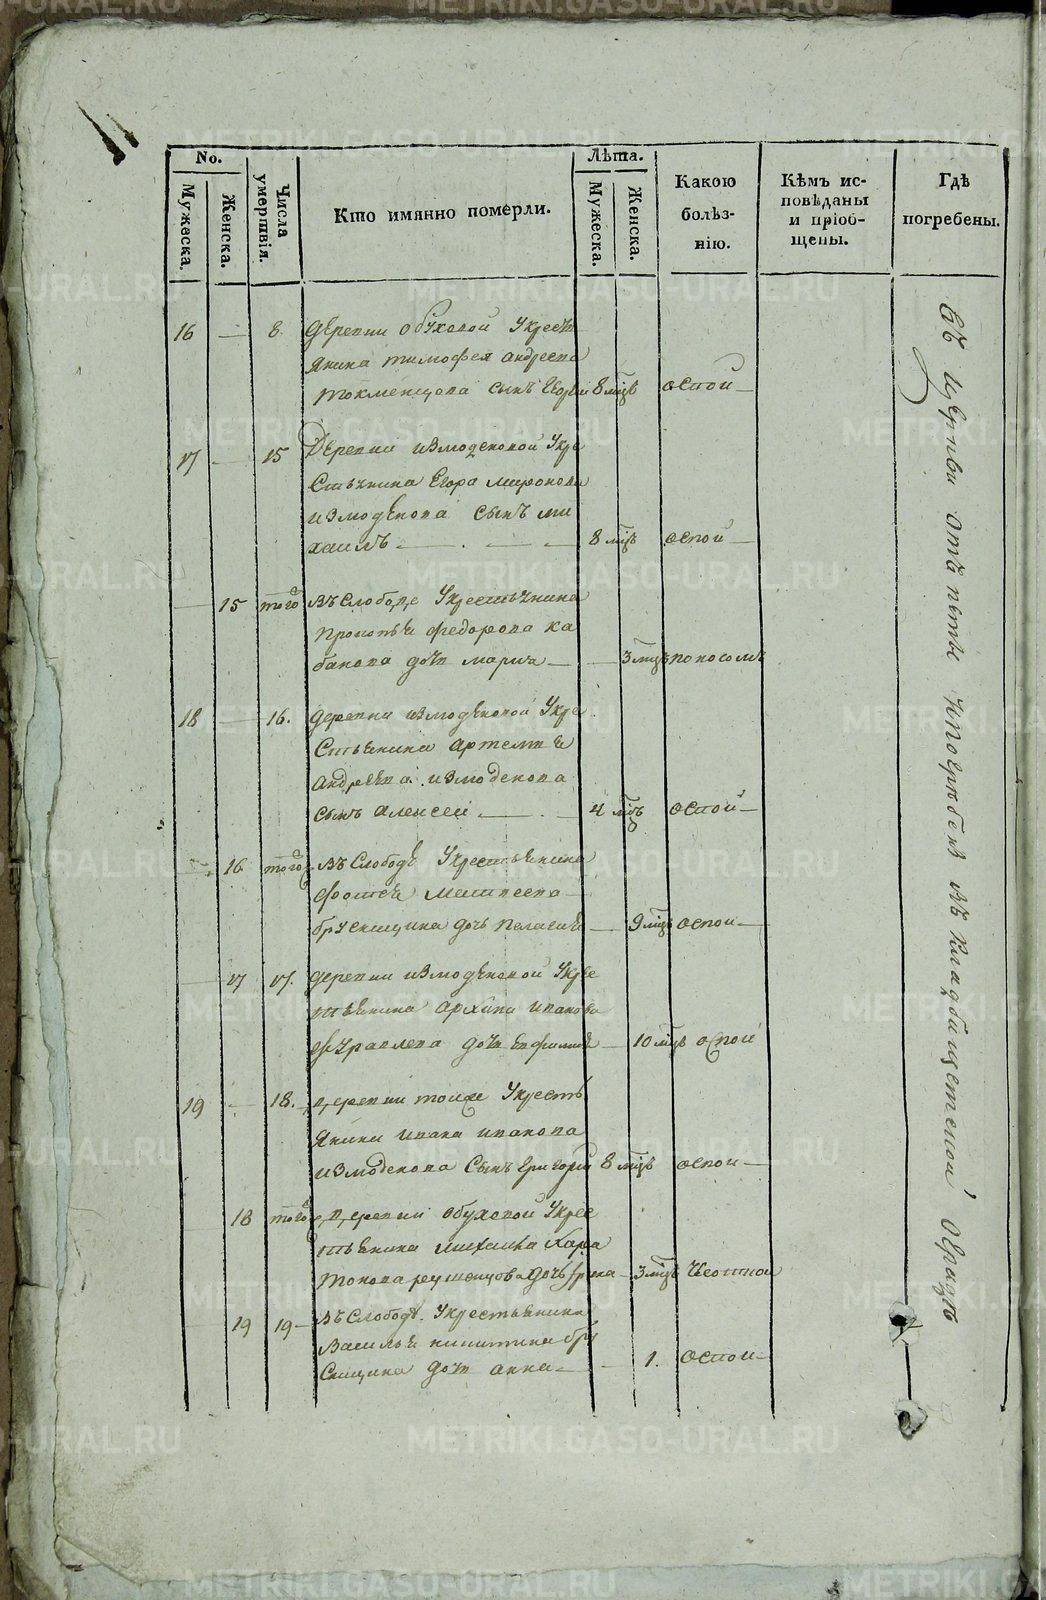 No.
Мужеска.
Женска.
Числа умертвія.
Кто имянно померли.
Лѣта.
Мужеска.
Женска.
Какою болѣзнію.
Кѣмъ исповѣданы и пріобщены.
Гдѣ погребены.
16 — 8. Деревни обуховой Укресть
янина тимофея андреева
токменцова сынъ Егоръ 8 мцъ оспой —
17 — 15 Деревни измоденовой Укре
стьянина Егора миронова
измоденова сынъ ми
хаилъ — 8 мцъ оспой —
— 15 того Въ Слободе Укрестьянина
прокопья федорова ка
банова дочь марья — 3 мцъ поносомъ
18 — 16. деревни измоденовой Укре
стьянина Артемья
андреева измоденова
сынъ алексей — 4 мцъ оспой —
— 16 того Въ Слободе Укрестьянина
фотея матвеева
брусницина дочь пелагея — 9 мцъ оспой —
— 17 17. деревни измоденовой Укре
стьянина архипа иванова
журавлева дочь евфимия — 10 мцъ оспой
19 — 18. деревни тойже Укресть
янина ивана иванова
измоденова сынъ григорей 8 мцъ оспой —
18 того деревни обуховой Укрес
тьянина михаила хари
тонова дочь — 3 мцъ
19 19 — Въ Слободе Укрестьянина
Василья никитина бру
сницина дочь анна — 1. оспой —
въ церкви отпеты ипогребены въ кладбищенской ограде
METRIKI.GASO-URAL.RU